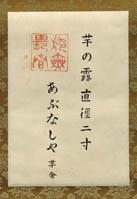 芋の露直徑二寸
あぶなしや 草舎